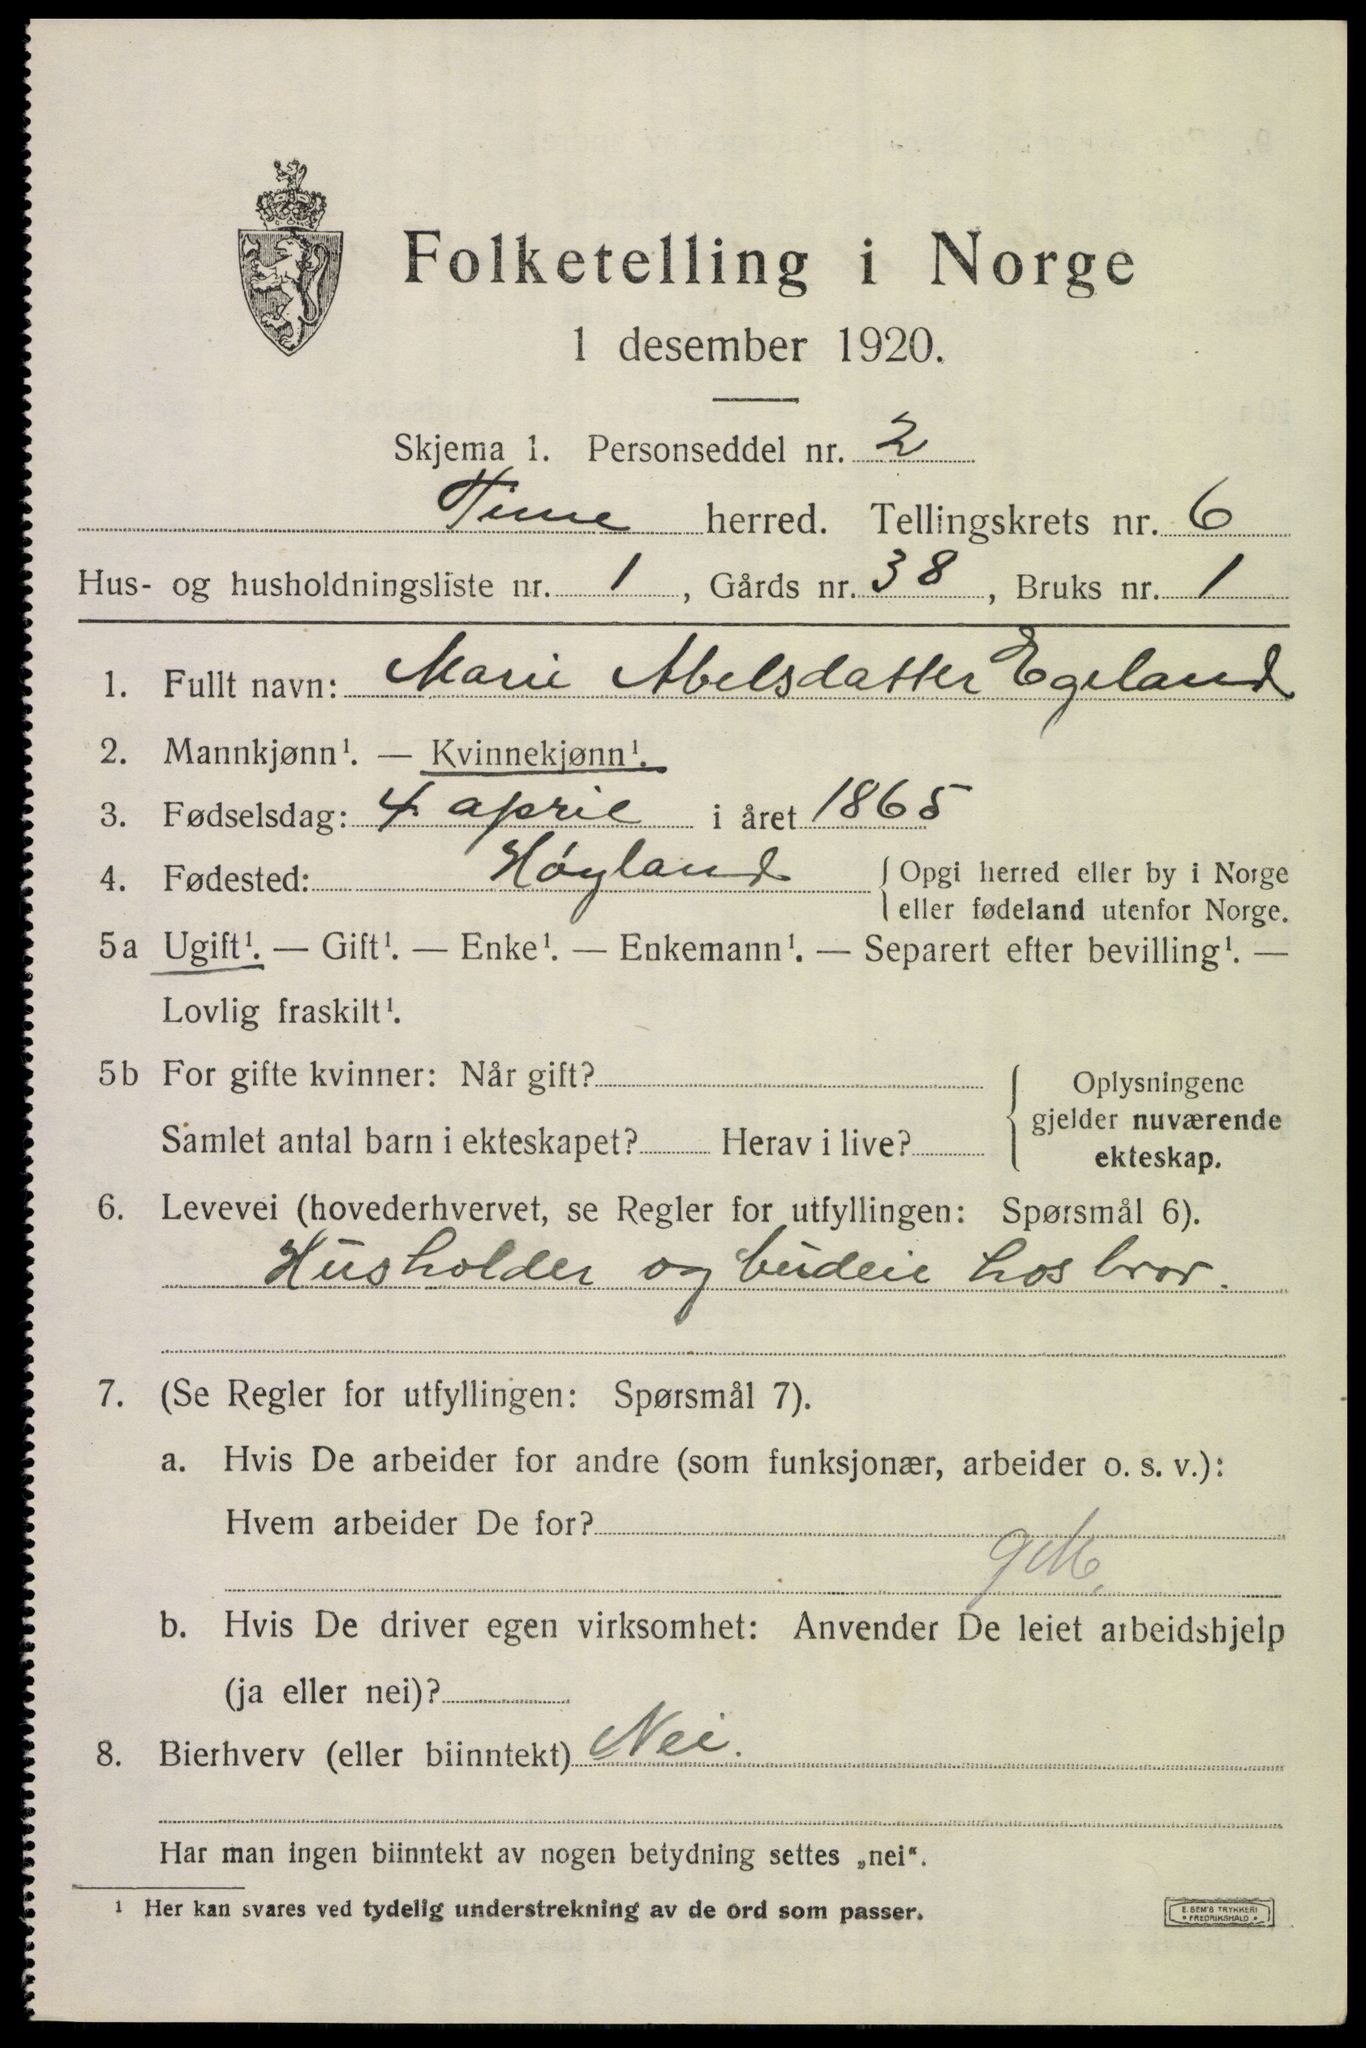 Folketelling i Norge
1 desember 1920.
Skjema 1. Personseddel nr. 2
Time herred. Tellingskrets nr. 6
Hus- og husholdningsliste nr. 1, Gårds nr. 38, Bruks nr. 1
1. Fullt navn: Marie Abelsdatter Egeland
2. Mannkjønn¹. — Kvinnekjønn¹.
3. Fødselsdag: 4 april i året 1865
4. Fødested: Høyland { Opgi herred eller by i Norge
eller fødeland utenfor Norge.
5a Ugift¹. — Gift¹. — Enke¹. — Enkemann¹. — Separert efter bevilling¹. —
Lovlig fraskilt¹.
5b For gifte kvinner: Når gift? { Oplysningene
gjelder nuværende
Samlet antal barn i ekteskapet? Herav i live?
ekteskap.
6. Levevei (hovederhvervet, se Regler for utfyllingen: Spørsmål 6).
Husholder og budeie hos bror.
7. (Se Regler for utfyllingen: Spørsmål 7).
a. Hvis De arbeider for andre (som funksjonær, arbeider o. s. v.):
Hvem arbeider De for?
b. Hvis De driver egen virksomhet: Anvender De leiet arbeidshjelp
(ja eller nei)?
8. Bierhverv (eller biinntekt) Nei.
Har man ingen biinntekt av nogen betydning settes „nei“.
¹ Her kan svares ved tydelig understrekning av de ord som passer.
E. SEM'S TRYKKERI
• FREDRIKSHALD •